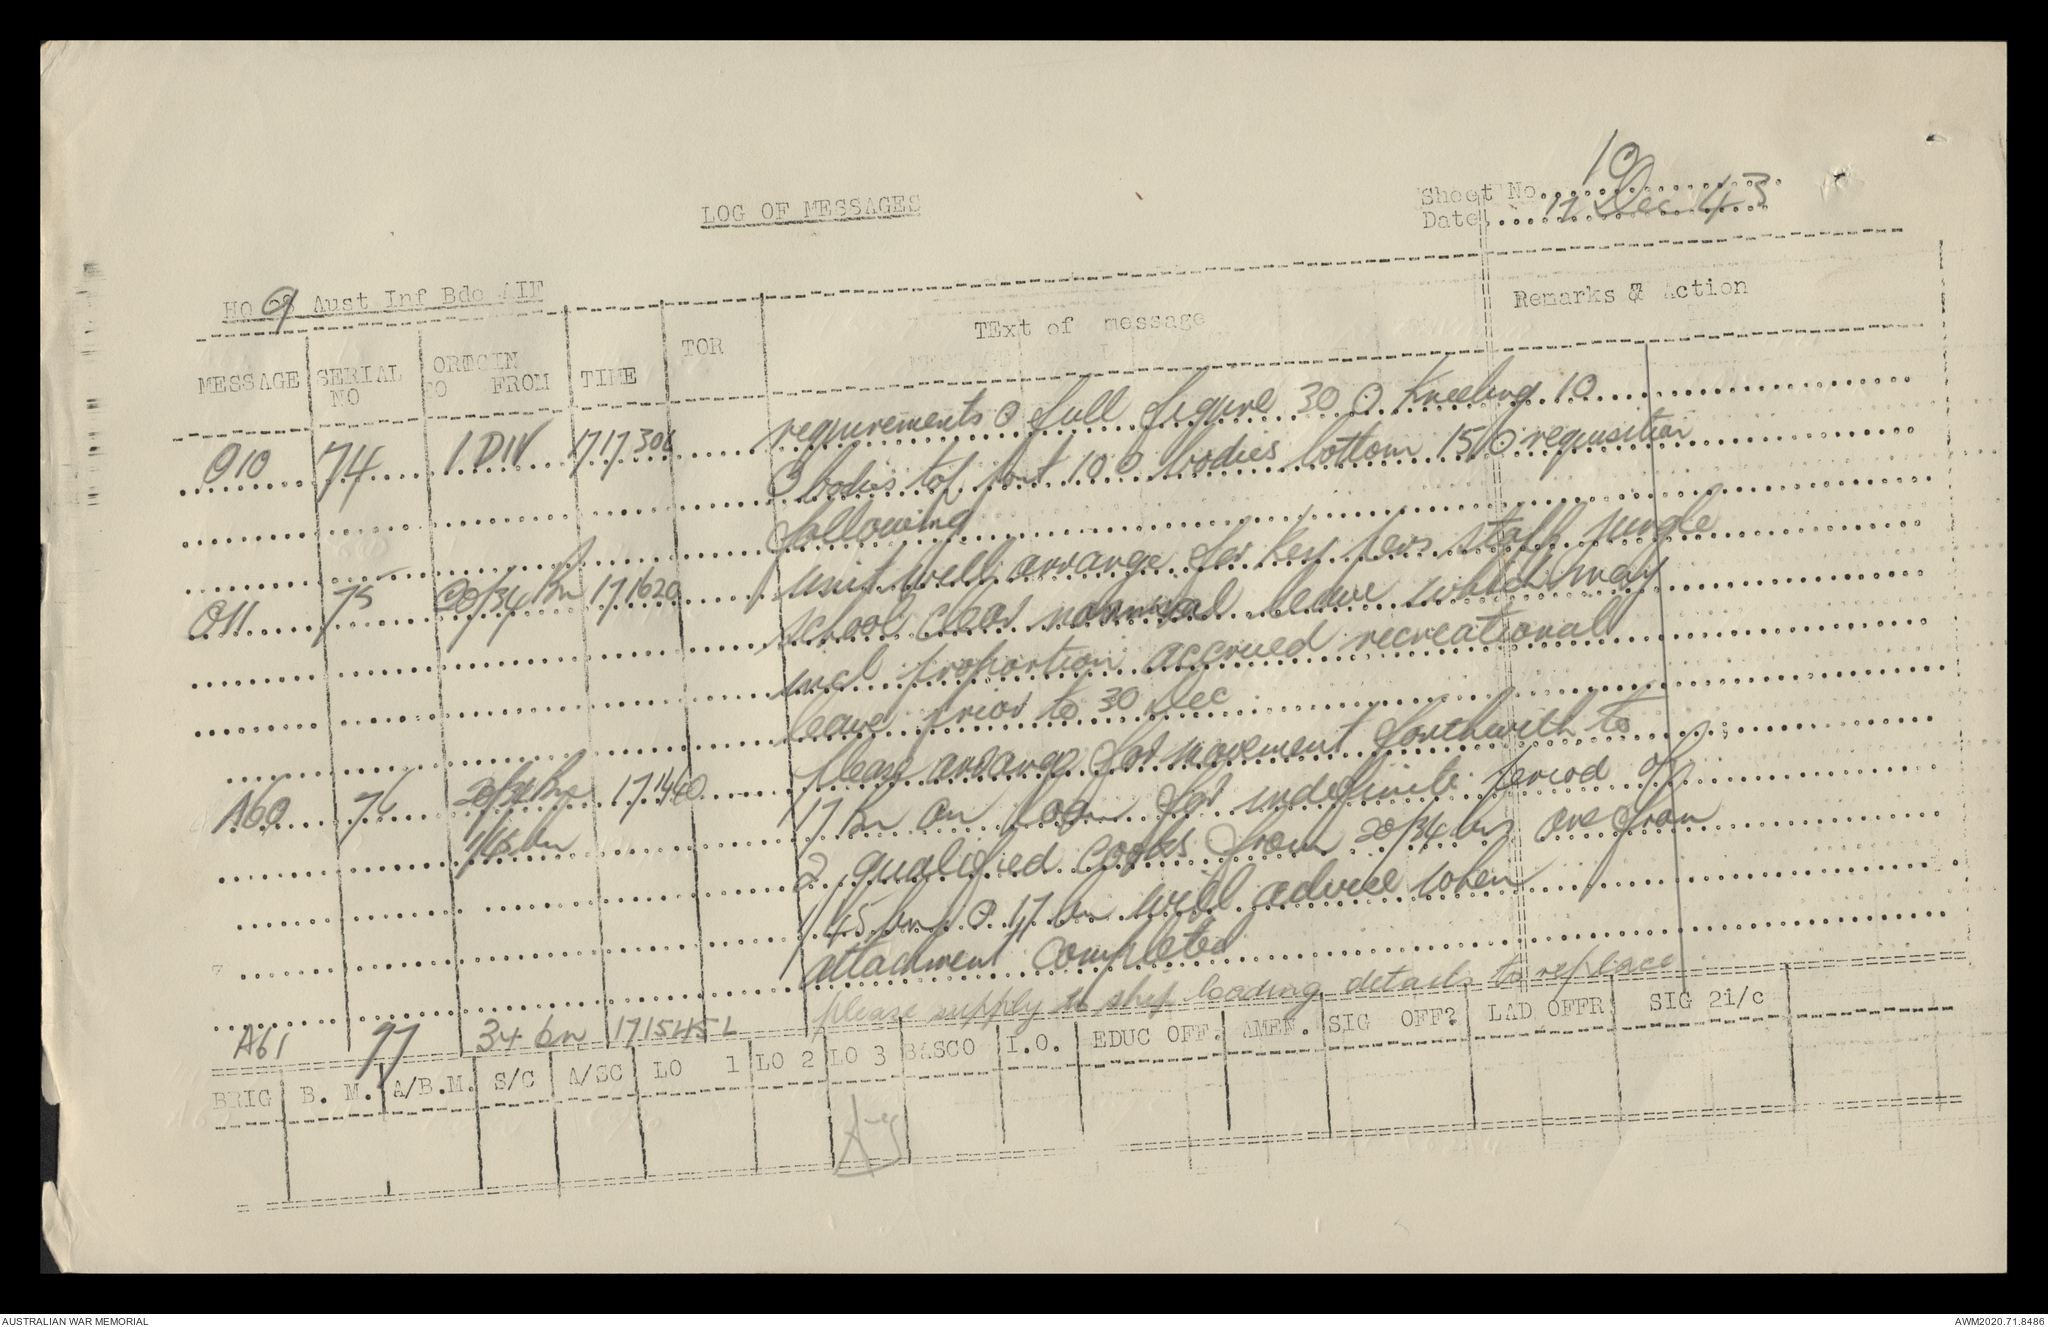 LOG OF MESSAGES
Sheet No. 10
Date. 17 Dec 43
HQ 9 Aust Inf Bde AIF
MESSAGE SERIAL NO ORIGIN TO FROM TIME TOR TExt of message Remarks & Action
O10 74 1 DIV 171730L requirements O full figure 30 O Kneeling 10
O bodies top part 10 O bodies bottom 15 O requisition
following
O11 75 20/34 Bn 171620 unit will arrange for key pers staff jungle
school clear normal leave which may
incl proportion accrued recreational
leave prior to 30 Dec
A60 76 20/34 Bn 171440 please arrange for movement forthwith to
1/45 bn 17 Bn on loan for indefinite period of
2 qualified cooks from 20/34 bn one from
1/45 bn O 17 bn will advise when
attachment completed
A61 77 34 bn 171545L please supply ship loading details to replace
BRIG B. M. A/B.M. S/C A/SC LO 1 LO 2 LO 3 BASCO I.O. EDUC OFF. AMEN. SIG OFF? LAD OFFR SIG 2i/c
AUSTRALIAN WAR MEMORIAL
AWM2020.71.8486